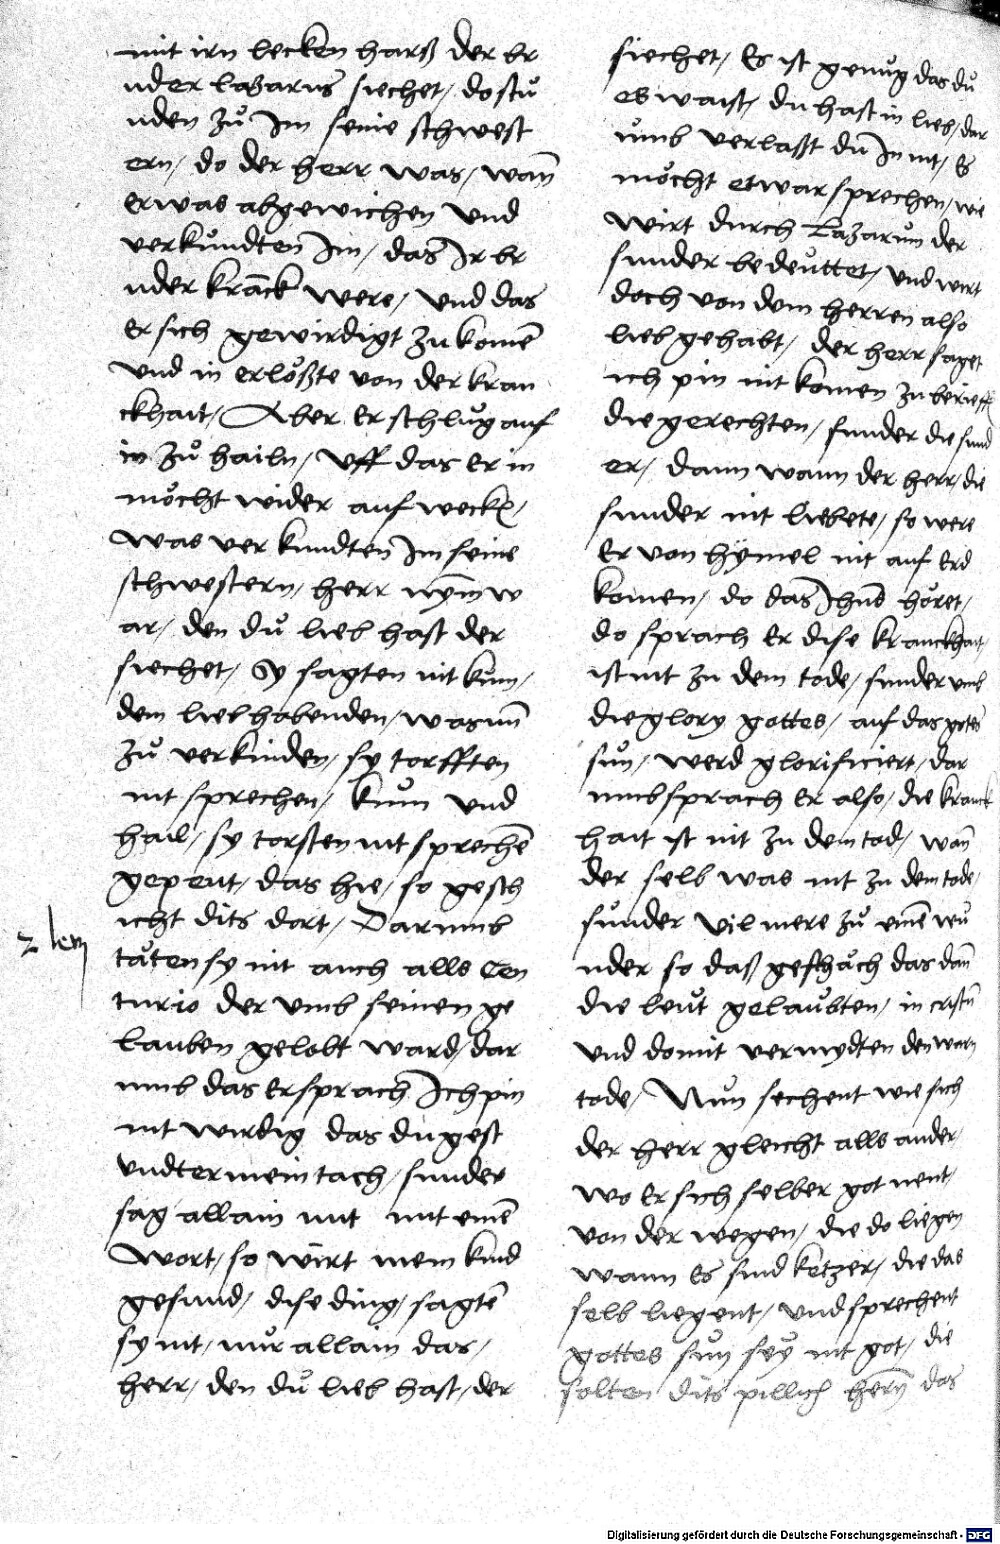 mit irn lecken harß der br
uder lazarus siechet, do stuͦ
nden zuͦ Im seine schwest
ern, do der herr was, wan̄
er was abgewichen vnd
verkündten Im, das Ir br
uder kranck were, vnd das
er sich gewirdigt zu komē
vnd in erlößte von der kran
ckhait, Aber er schluͦg auf
in zuͦ hailn, vff das er in
möcht wider auf wecken,
Was verkundten Im seine
schwestern, herr nym w
ar, den duͦ lieb hast der
siechet, Sy sagten nit kum,
dem liebhabenden, was nun
zuͦ verkinden, sy torfften
nit sprechen, kum vnd
hail, sy torsten nit sprechē
gepeut, das hie, so gesch
icht dits dort, Darumb
täten sy nit auch alls Cen
turio der vmb seinen ge
lauben gelobt ward, dar
umb das er sprach Ich pin
nit wirdig das du gest
vndter mein tach, sunder
sag allain mit mit einē
Wort, so wirt mein kind
gesund, dise ding, sagtē
sy nit, nur allain das,
herr, den duͦ lieb hast, der
siechet, Es ist genuͦg das duͦ
es waist, du hast in lieb, dar
umb verlasst du In nit, Es
möcht etwar sprechen, wie
wirt durch Lazarum der
sunder bedeuttet, vnd wirt
doch von dem herren also
lieb gehabt, der herr saget
ich pin nit komen zu berieff
die gerechten, sunder die sund
er, dann wann der herr, die
sunder nit liebete, so were
Er von hÿmel nit auf erd
komen, do das Jhus höret,
do sprach er dise kranckhait,
ist nit zu dem tode, sunder vmb
die glory gottes, auf das gotes
sun, werd glorificiert, dar
umb sprach er also, die kranck
hait ist nit zu dem tod, wan̄
der selb was nit zu dem tode,
sunder vil mere zuͦ einē wu
nder so daß geschäch das dan̄
die leut gelaubten, in cristū
vnd domit vermydten den warn
tode, Nun sechent wie sich
der herr gleicht alls ander,
wo er sich selber got nent,
von der wegen, die do liegen
wann es sind ketzer, die das
selb liegent, vnd sprechent
gottes sun sey nit got, die
solten dits pillich hern̄ das
z lem
Digitalisierung gefördert durch die Deutsche Forschungsgemeinschaft - DFG